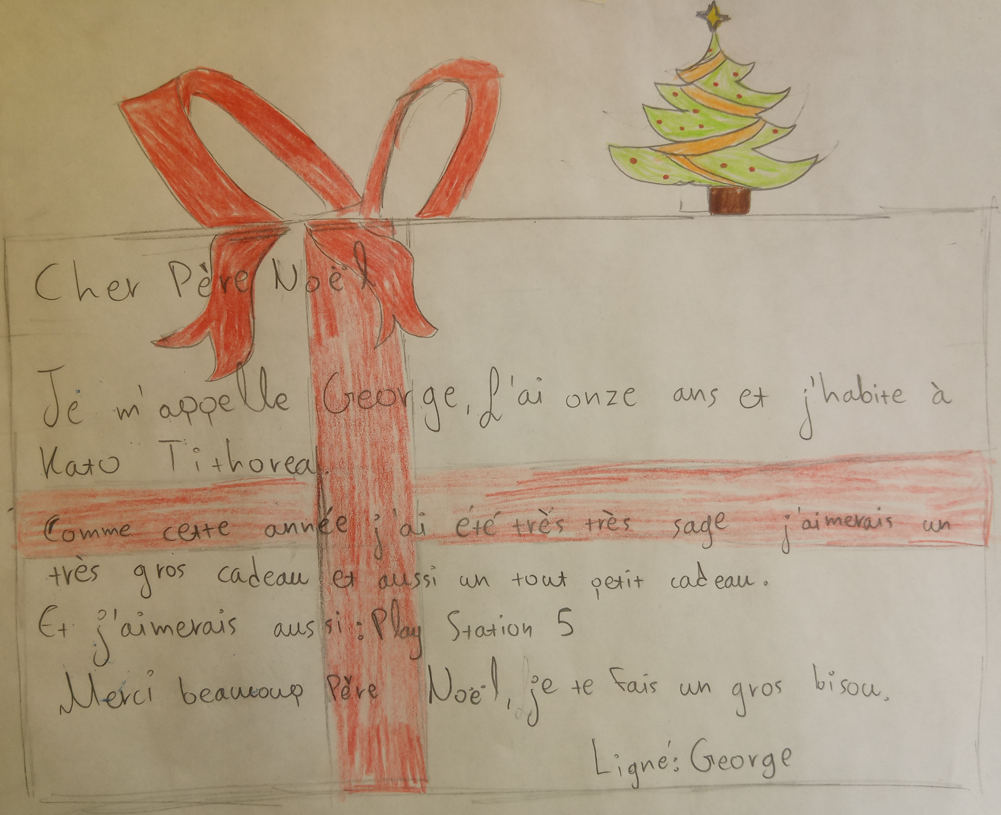 Cher Père Noël
Je m'appelle George, J'ai onze ans et j'habite à
Kato Tithorea.
Comme cette année j'ai été très très sage j'aimerais un
très gros cadeau et aussi un tout petit cadeau.
Et j'aimerais aussi : Play Station 5
Merci beaucoup Père Noël, je te fais un gros bisou.
Ligné: George